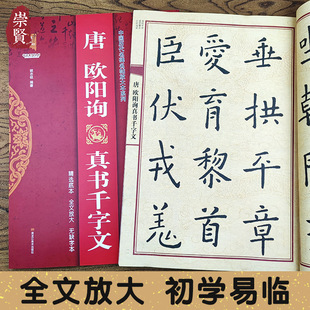 崇賢
唐 欧阳询
真书千字文
精选底本 全文放大 无缺字本
唐 欧阳询真书千字文
垂拱平章
愛育黎首
臣伏戎羌
全文放大 初学易临